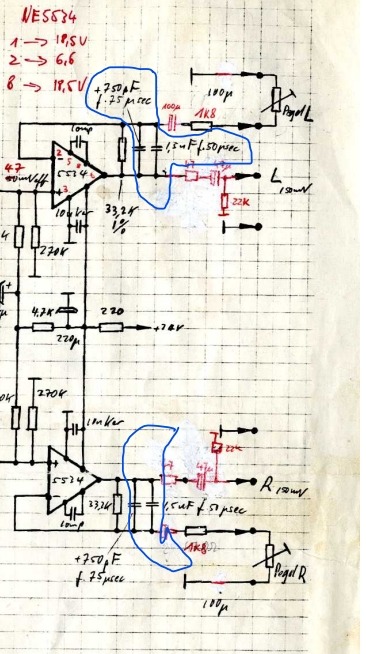 NE5534
1 → 18,5V
2 → 6,6
8 → 18,5V
+750pF
f. 75µsec
100µ
100µ
1K8
Pegel L
10mp
1,5nF f. 50µsec
2
5
8
5534
6
3
+
47
L 150mV
47µ
22K
10nKer
33,2K
1%
270K
4,7K
220
220µ
+24V
270K
10nKer
22K
5534
47
47µ
R 150mV
33,2K
1,5nF f. 50µsec
10mp
1K8
+750pF
f. 75µsec
Pegel R
100µ